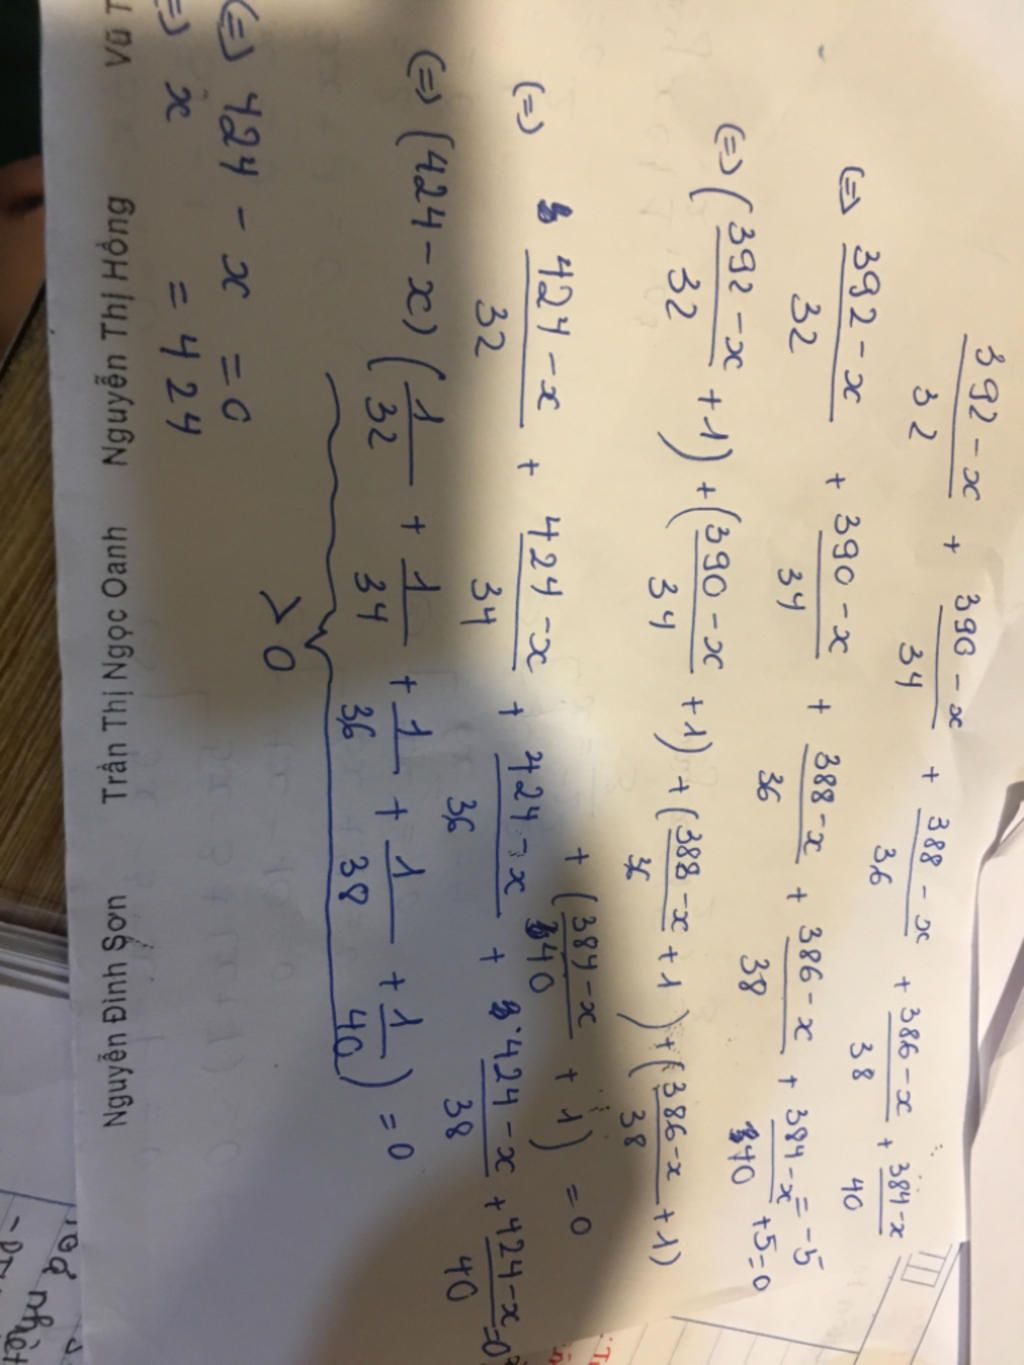 392-x/32 + 390-x/34 + 388-x/36 + 386-x/38 + 384-x/40
= -5
(=) 392-x/32 + 390-x/34 + 388-x/36 + 386-x/38 + 384-x/40 +5=0
(=) (392-x/32 +1) + (390-x/34 +1) + (388-x/36 +1) + (386-x/38 +1)
+ (384-x/40 + 1) = 0
(=) 424-x/32 + 424-x/34 + 424-x/36 + 424-x/38 + 424-x/40 =0
(=) (424-x) (1/32 + 1/34 + 1/36 + 1/38 + 1/40) = 0
> 0
(=) 424 - x = 0
(=) x = 424
Vũ T
Nguyễn Thị Hồng
Trần Thị Ngọc Oanh
Nguyễn Đình Sơn